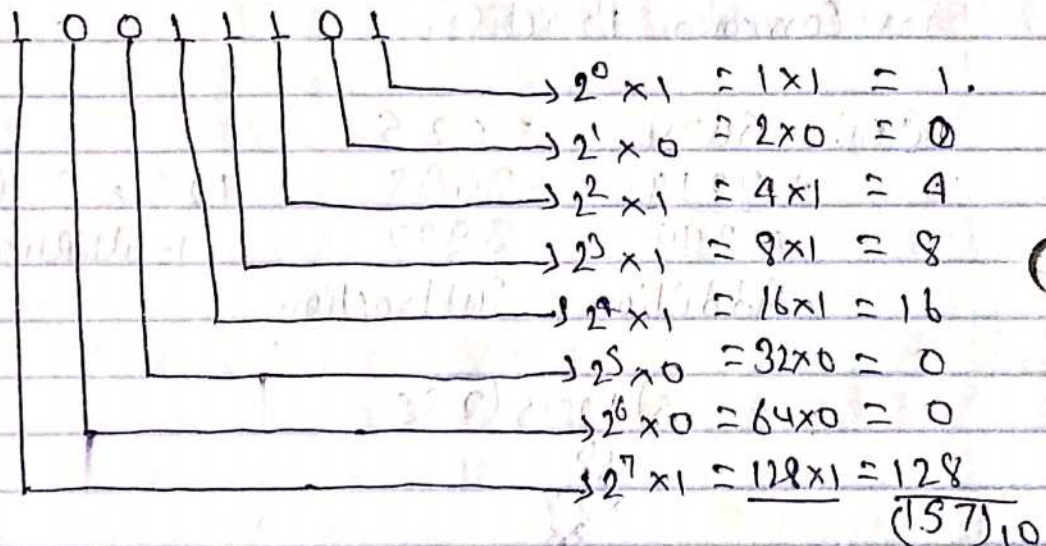 1 0 0 1 1 1 0 1
→ 2⁰ × 1 = 1×1 = 1.
→ 2¹ × 0 = 2×0 = 0
→ 2² × 1 = 4×1 = 4
→ 2³ × 1 = 8×1 = 8
→ 2⁴ × 1 = 16×1 = 16
→ 2⁵ × 0 = 32×0 = 0
→ 2⁶ × 0 = 64×0 = 0
→ 2⁷ × 1 = 128×1 = 128
(157)₁₀